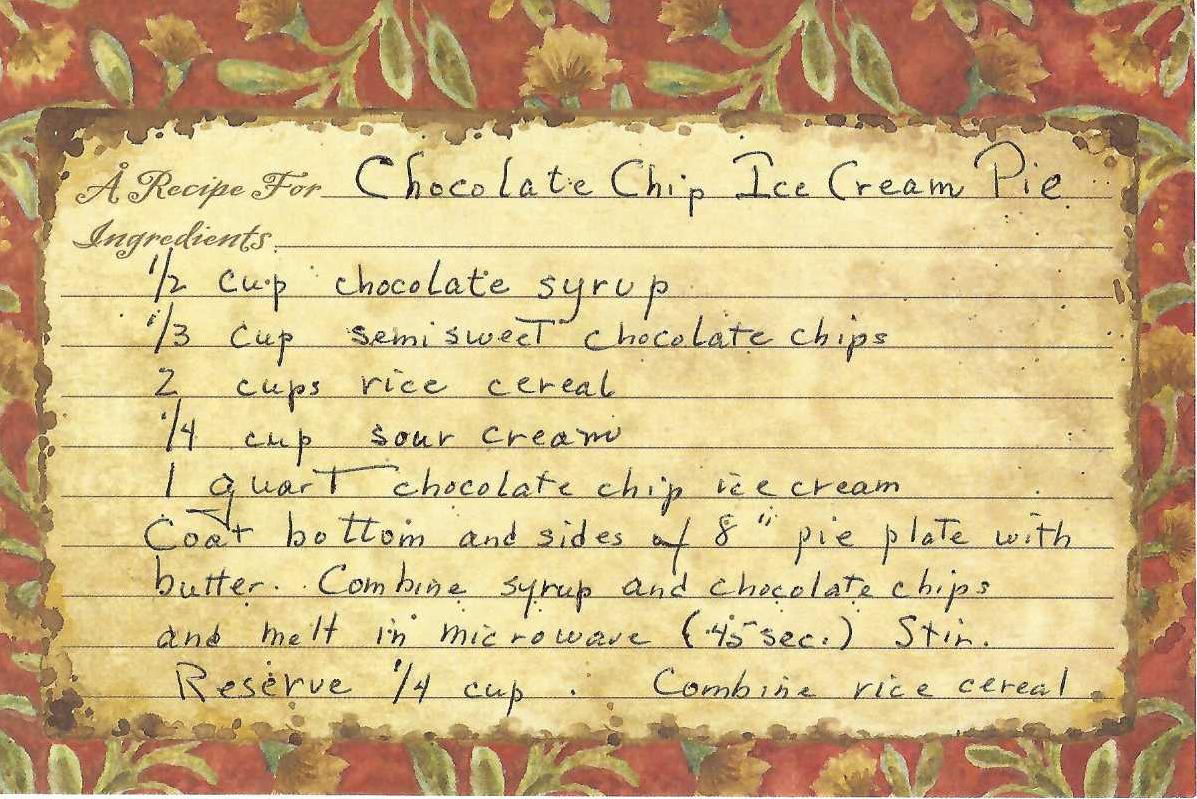 A Recipe For Chocolate Chip Ice Cream Pie
Ingredients
1/2 cup chocolate syrup
1/3 cup semisweet chocolate chips
2 cups rice cereal
1/4 cup sour cream
1 quart chocolate chip ice cream
Coat bottom and sides of 8" pie plate with
butter. Combine syrup and chocolate chips
and melt in microwave (45 sec.) Stir.
Reserve 1/4 cup. Combine rice cereal